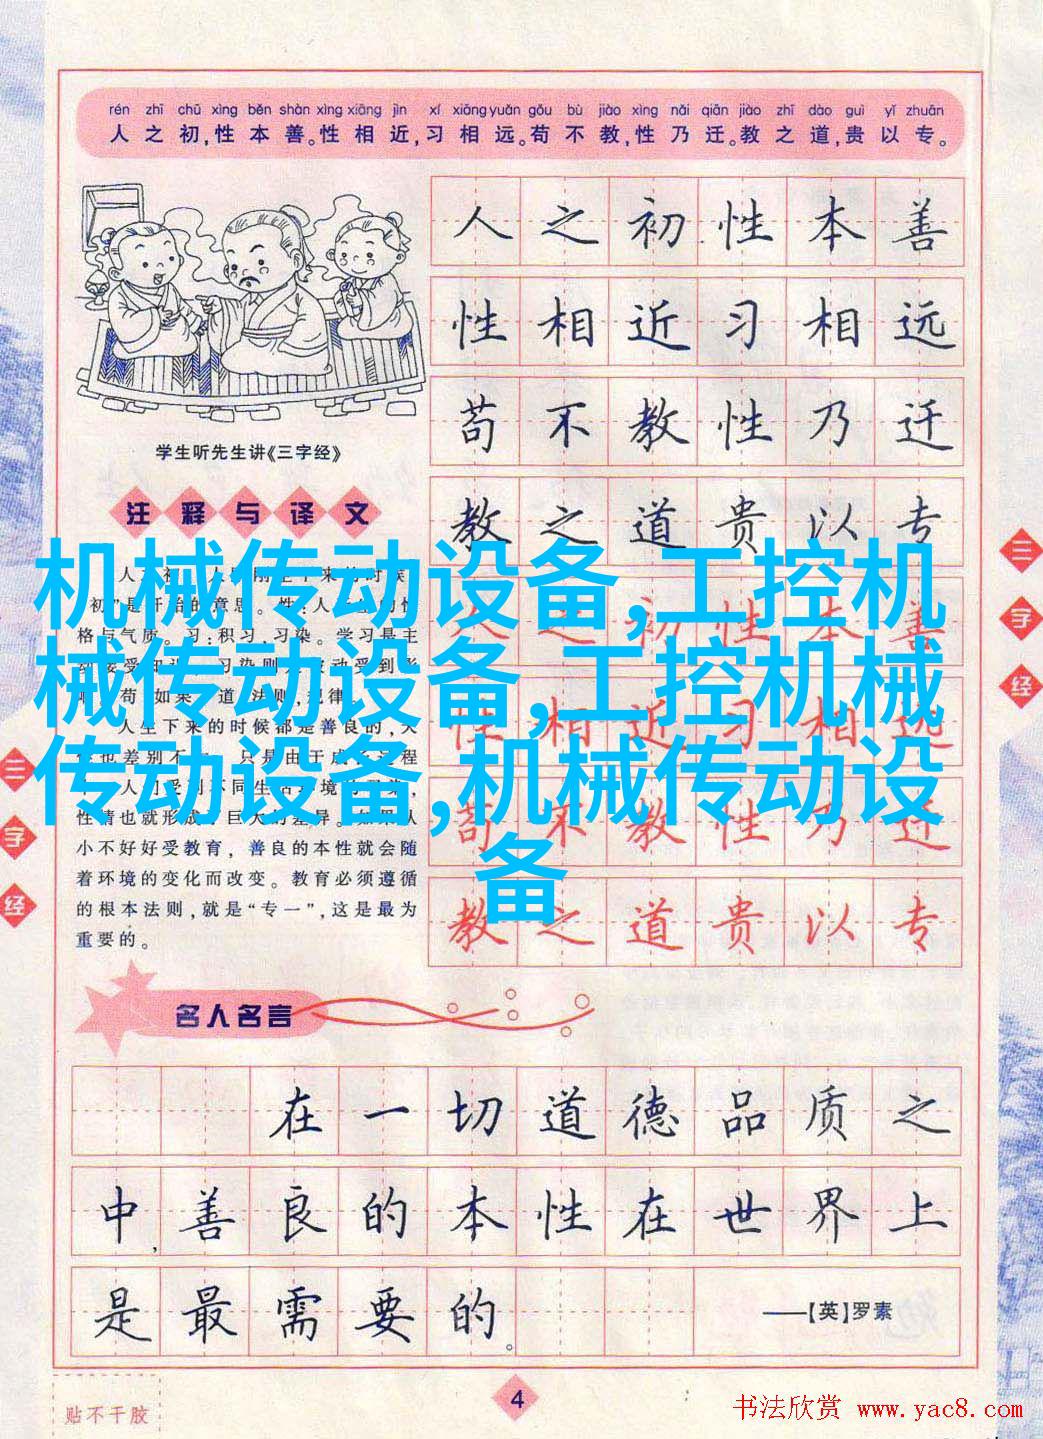 rén zhī chū xìng běn shàn xìng xiāng jìn xí xiāng yuǎn gǒu bù jiào xìng nǎi qiān jiào zhī dào guì yǐ zhuān
人之初,性本善。性相近,习相远。苟不教,性乃迁。教之道,贵以专。
人之初性本善
性相近习相远
苟不教性乃迁
教之道贵以专
学生听先生讲《三字经》
注释与译文
机械传动设备,工控机
械传动设备,工控机械
传动设备,机械传动设
备
格与气质。习:积习,习染。学习是主
人生下来的时候都是善良的,
性情也就形成了巨大的差异。如果从
小不好好受教育，善良的本性就会随
着环境的变化而改变。教育必须遵循
的根本法则，就是“专一”，这是最为
重要的。
性相近习相远
苟不教性乃迁
教之道贵以专
三字经
三字经
名人名言
在一切道德品质之
中,善良的本性在世界上
是最需要的。
——【英】罗素
贴不干胶
4
书法欣赏 www.yac8.com